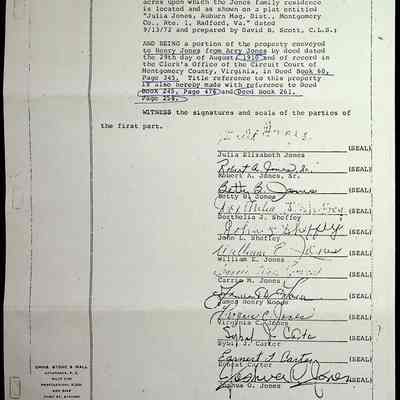 acres upon which the Jones family residence
is located and as shown on a plat entitled
"Julia Jones, Auburn Mag. Dist., Montgomery
Co., Rte. 1, Radford, Va." dated
9/13/72 and prepared by David B. Scott, C.L.S.;
AND BEING a portion of the property conveyed
to Henry Jones from Arry Jones by deed dated
the 29th day of August, 1910 and of record in
the Clerk's Office of the Circuit Court of
Montgomery County, Virginia, in Deed Book 60,
Page 345. Title reference to this property
is also hereby made with reference to Deed
Book 245, Page 476 and Deed Book 261,
Page 254.
WITNESS the signatures and seals of the parties of
the first part.
(SEAL)
Julia Elizabeth Jones
Robert A. Jones, Sr. (SEAL)
Robert A. Jones, Sr.
Betty B. Jones (SEAL)
Betty B. Jones
(SEAL)
Dorthelia J. Sheffey
John L. Sheffey (SEAL)
John L. Sheffey
William E. Jones (SEAL)
William E. Jones
(SEAL)
Carrie M. Jones
(SEAL)
James Henry
Virginia C. Jones (SEAL)
Virginia C. Jones
Sybil J. Carter (SEAL)
Sybil J. Carter
Earnest L. Carter (SEAL)
Ernest Carter
Joshua O. Jones (SEAL)
Joshua O. Jones
STONE & WALL